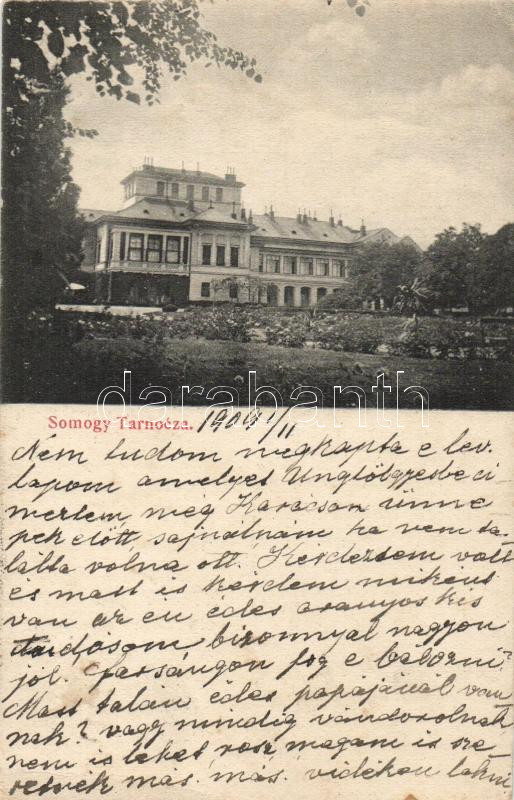 darabanth
Somogy Tarnócza. 1904 1/11
Nem tudom megkapta e lev.
lapom amelyet Ungtölgyesbe ci
meztem még Karácson ünne
pek előtt sajnálnám ha nem ta-
lálta volna ott. Kérdeztem volt
és mast is kérdem miként
van az én édes aranyos kis
tudósom bizonnyal nagyon
jól. farsangon fog e bálozni?
Mast talán édes papájával van
nak? vagy mindig vándorolnak
nem is lehet rosz magam is sze
retnék más más vidéken lakni